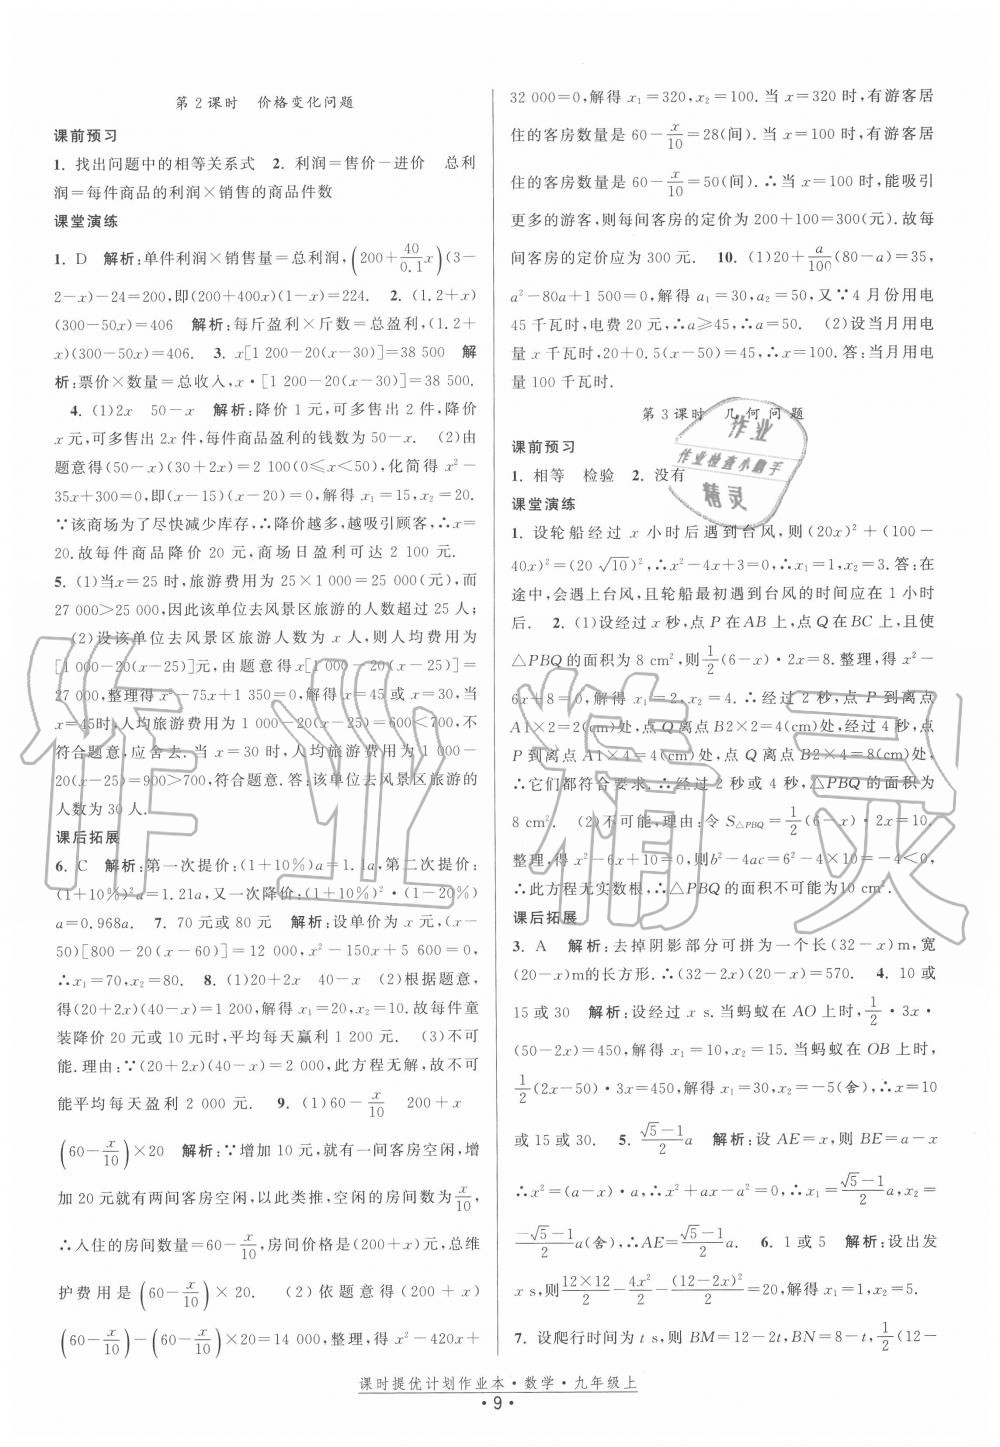 第2课时　价格变化问题
课前预习
1. 找出问题中的相等关系式　2. 利润=售价-进价　总利
润=每件商品的利润×销售的商品件数
课堂演练
1. D　解析:单件利润×销售量=总利润,(200+40/0.1 x)(3-
2-x)-24=200,即(200+400x)(1-x)=224.　2. (1.2+x)
(300-50x)=406　解析:每斤盈利×斤数=总盈利,(1.2+
x)(300-50x)=406.　3. x[1 200-20(x-30)]=38 500　解
析:票价×数量=总收入,x·[1 200-20(x-30)]=38 500.
4. (1)2x　50-x　解析:降价1元,可多售出2件,降价
x元,可多售出2x件,每件商品盈利的钱数为50-x.　(2)由
题意得(50-x)(30+2x)=2 100(0≤x<50),化简得x²-
35x+300=0,即(x-15)(x-20)=0,解得x₁=15,x₂=20.
∵该商场为了尽快减少库存,∴降价越多,越吸引顾客,∴x=
20.故每件商品降价20元,商场日盈利可达2 100元.
5. (1)当x=25时,旅游费用为25×1 000=25 000(元),而
27 000>25 000,因此该单位去风景区旅游的人数超过25人;
(2)设该单位去风景区旅游人数为x人,则人均费用为
[1 000-20(x-25)]元,由题意得x[1 000-20(x-25)]=
27 000,整理得x²-75x+1 350=0,解得x=45或x=30,当
x=45时,人均旅游费用为1 000-20(x-25)=600<700,不
符合题意,应舍去.当x=30时,人均旅游费用为1 000-
20(x-25)=900>700,符合题意.答:该单位去风景区旅游的
人数为30人.
课后拓展
6. C　解析:第一次提价:(1+10%)a=1.1a,第二次提价:
(1+10%)²a=1.21a,又一次降价:(1+10%)²·(1-20%)
a=0.968a.　7. 70元或80元　解析:设单价为x元,(x-
50)[800-20(x-60)]=12 000,x²-150x+5 600=0,
∴x₁=70,x₂=80.　8. (1)20+2x　40-x　(2)根据题意,
得(20+2x)(40-x)=1 200,解得x₁=20,x₂=10.故每件童
装降价20元或10元时,平均每天赢利1 200元.　(3)不可
能.理由:∵(20+2x)(40-x)=2 000,此方程无解,故不可
能平均每天盈利2 000元.　9. (1)60-x/10　200+x
(60-x/10)×20　解析:∵增加10元,就有一间客房空闲,增
加20元就有两间客房空闲,以此类推,空闲的房间数为x/10,
∴入住的房间数量=60-x/10,房间价格是(200+x)元,总维
护费用是(60-x/10)×20.　(2)依题意得(200+x)
(60-x/10)-(60-x/10)×20=14 000,整理,得x²-420x+
32 000=0,解得x₁=320,x₂=100.当x=320时,有游客居
住的客房数量是60-x/10=28(间).当x=100时,有游客居
住的客房数量是60-x/10=50(间).∴当x=100时,能吸引
更多的游客,则每间客房的定价为200+100=300(元).故每
间客房的定价应为300元.　10. (1)20+a/100(80-a)=35,
a²-80a+1 500=0,解得a₁=30,a₂=50,又∵4月份用电
45千瓦时,电费20元,∴a≥45,∴a=50.　(2)设当月用电
量x千瓦时,20+0.5(x-50)=45,∴x=100.答:当月用电
量100千瓦时.
第3课时　几何问题
课前预习
1. 相等　检验　2. 没有
课堂演练
1. 设轮船经过x小时后遇到台风,则(20x)²+(100-
40x)²=(20√10)²,∴x²-4x+3=0,∴x₁=1,x₂=3.答:在
途中,会遇上台风,且轮船最初遇到台风的时间应在1小时
后.　2. (1)设经过x秒,点P在AB上,点Q在BC上,且使
△PBQ的面积为8 cm²,则1/2(6-x)·2x=8.整理,得x²-
6x+8=0,解得x₁=2,x₂=4.∴经过2秒,点P到离点
A1×2=2(cm)处,点Q离点B2×2=4(cm)处.经过4秒,点
P到离点A1×4=4(cm)处,点Q离点B2×4=8(cm)处,
∴它们都符合要求.∴经过2秒或4秒,△PBQ的面积为
8 cm².　(2)不可能,理由:令S△PBQ=1/2(6-x)·2x=10.
整理,得x²-6x+10=0,则b²-4ac=6²-40=-4<0,
∴此方程无实数根,∴△PBQ的面积不可能为10 cm².
课后拓展
3. A　解析:去掉阴影部分可拼为一个长(32-x)m,宽
(20-x)m的长方形.∴(32-x)(20-x)=570.　4. 10或
15或30　解析:设经过x s.当蚂蚁在AO上时,1/2·3x·
(50-2x)=450,解得x₁=10,x₂=15.当蚂蚁在OB上时,
1/2(2x-50)·3x=450,解得x₁=30,x₂=-5(舍),∴x=10
或15或30.　5. (√5-1)/2 a　解析:设AE=x,则BE=a-x
∴x²=(a-x)·a,∴x²+ax-a²=0,∴x₁=(√5-1)/2 a,x₂=
(-√5-1)/2 a(舍),∴AE=(√5-1)/2 a.　6. 1或5　解析:设出发
x s,则(12×12)/2-4x²/2-(12-2x)²/2=20,解得x₁=1,x₂=5.
7. 设爬行时间为t s,则BM=12-2t,BN=8-t,1/2(12-
课时提优计划作业本·数学·九年级上
·9·
作业
作业检查小助手
精灵
作业精灵